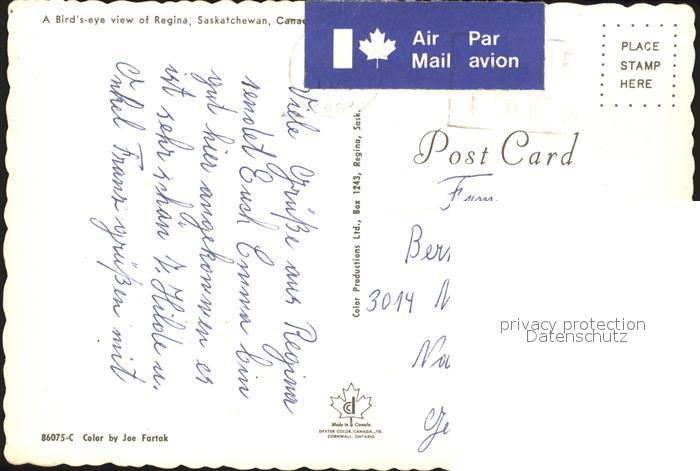 A Bird's-eye view of Regina, Saskatchewan,
Air Mail
Par avion
PLACE
STAMP
HERE
Post Card
Viele Grüße aus Regina
sendet Euch Emma bin
gut hier angekommen es
ist sehr schön T. Hilde u.
Onkel Franz grüßen mit
Color Productions Ltd., Box 1243, Regina, Sask.
3014
privacy protection
Datenschutz
Made in Canada
DEXTER COLOR CANADA, LTD.
CORNWALL, ONTARIO
86075-C Color by Joe Fartak